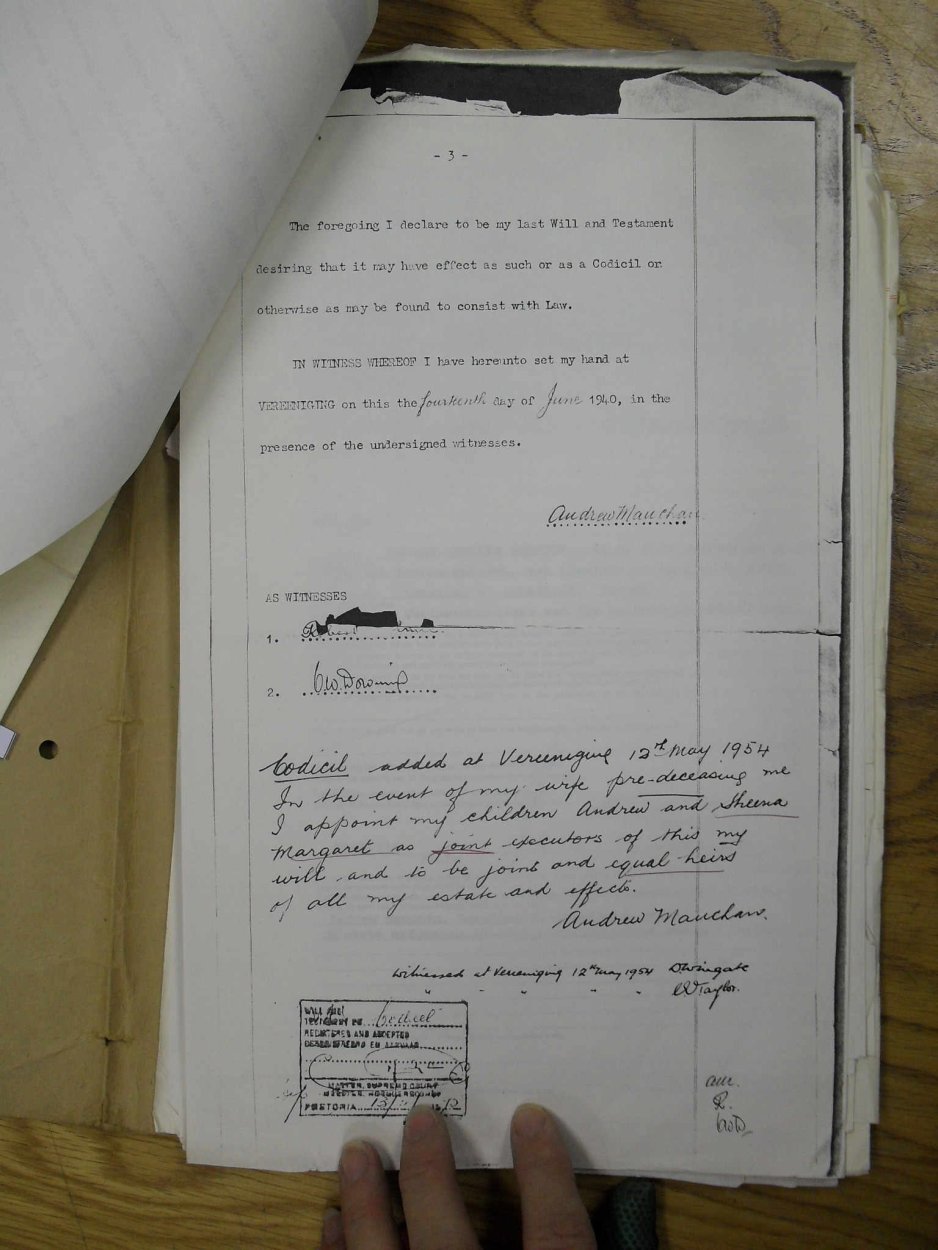 - 3 -
The foregoing I declare to be my last Will and Testament
desiring that it may have effect as such or as a Codicil or
otherwise as may be found to consist with Law.
IN WITNESS WHEREOF I have hereunto set my hand at
VEREENIGING on this the fourteenth day of June 1940, in the
presence of the undersigned witnesses.
Andrew Mauchan
AS WITNESSES
1. Robert
2. Geo. Downie
Codicil added at Vereeniging 12th May 1954
In the event of my wife pre-deceasing me
I appoint my children Andrew and Sheena
Margaret as joint executors of this my
will and to be joint and equal heirs
of all my estate and effects.
Andrew Mauchan.
Witnessed at Vereeniging 12th May 1954 D Wingate
" " " " " Taylor.
WILL AND
TESTAMENT Codicil
REGISTERED AND ACCEPTED
GEREGISTREERD EN AANVAAR
MASTER, SUPREME COURT
MEESTER, HOOGGEREGSHOF
PRETORIA
am.
R.